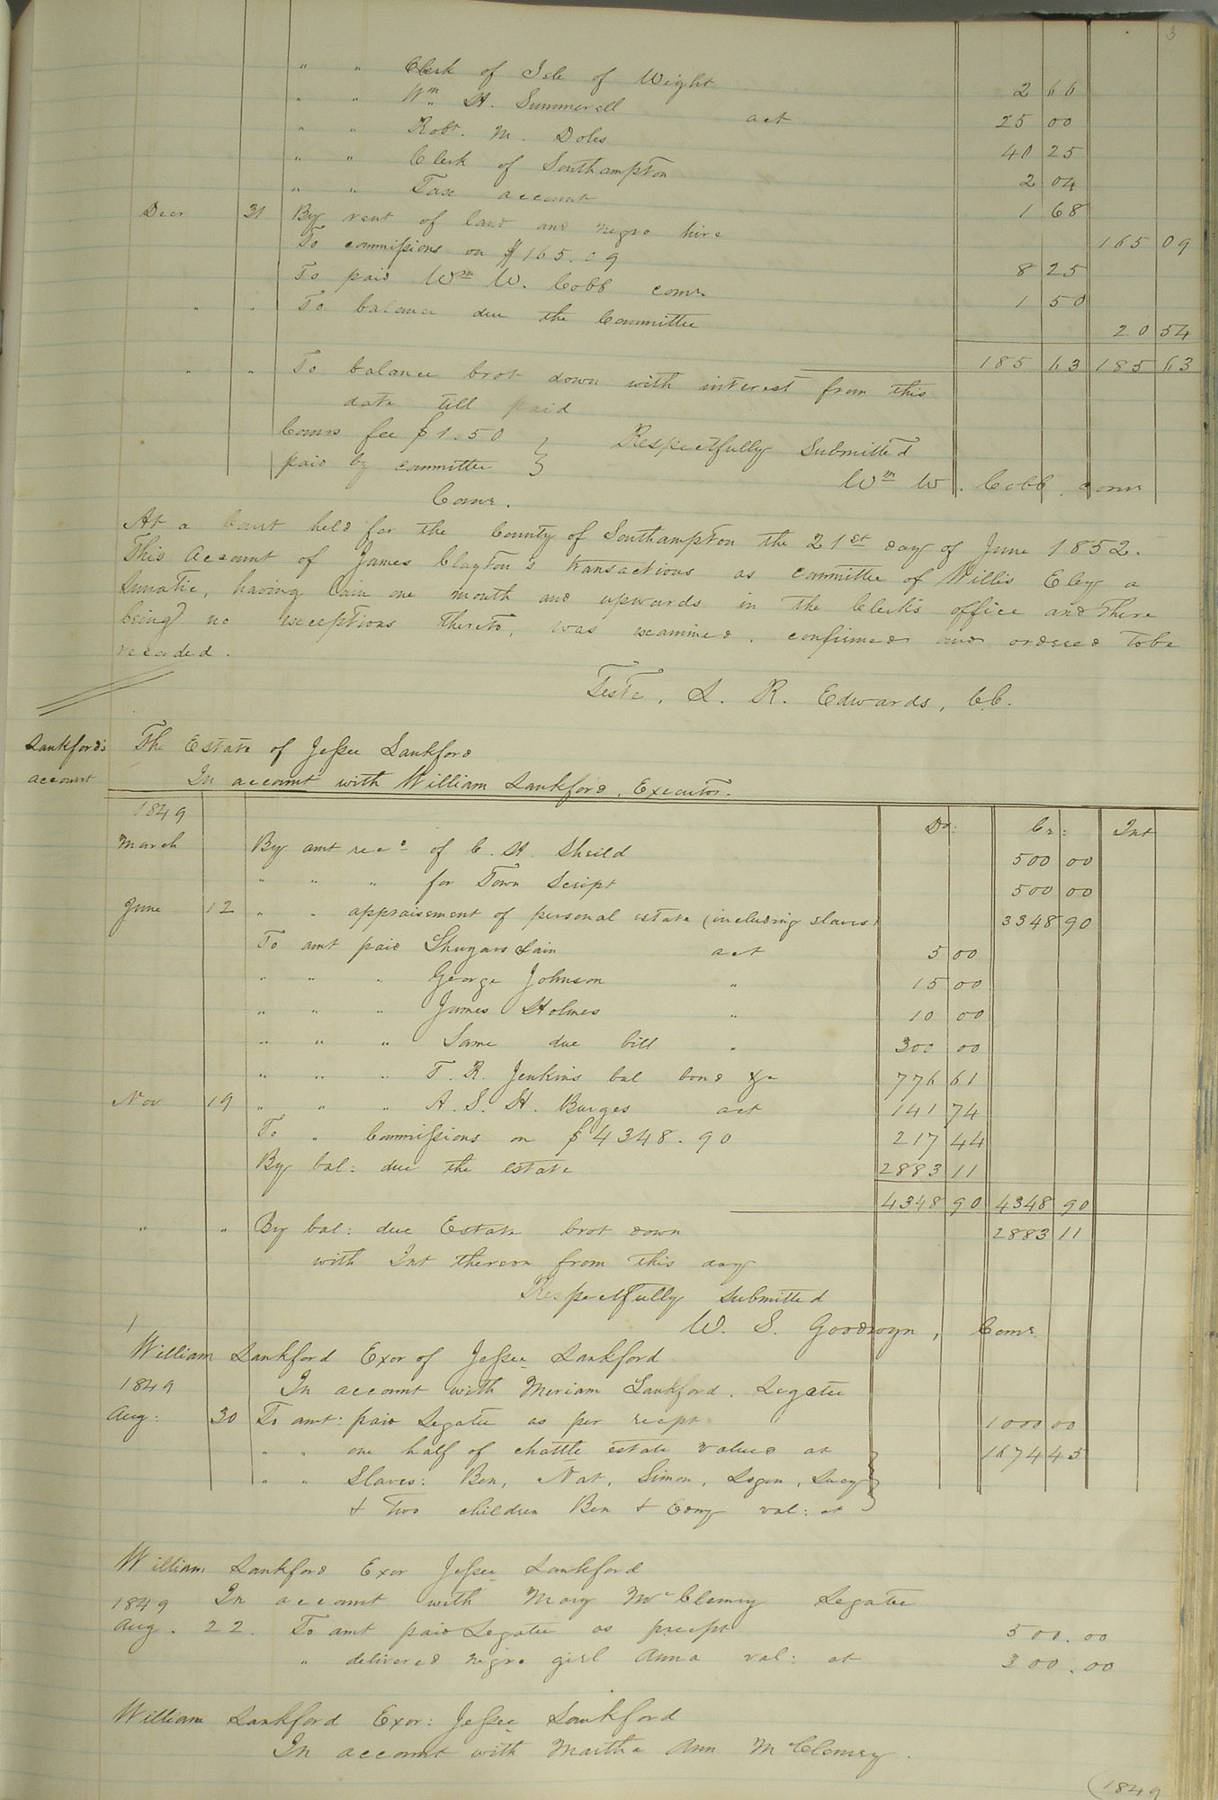 3
" " Clerk of Isle of Wight 2 66
" " Wm H. Summerell act 25 00
" " Robt. M. Doles 40 25
" " Clerk of Southampton 2 04
" " Tax account 1 68
Decr 31 By rent of land and negro hire 165 09
To commissions on $165.09 8 25
To paid Wm W. Cobb comr 1 50
" " To balance due the Committee 20 54
185 63 185 63
" " To balance brot down with interest from this
date till paid
Comrs fee $1.50 } Respectfully Submitted
paid by committee } Wm W. Cobb, comr
Comr.
At a Court held for the County of Southampton the 21st day of June 1852.
This Account of James Clayton's transactions as committee of Willis Eley a
Lunatic, having lain one month and upwards in the Clerk's office and there
being no exceptions thereto, was examined, confirmed and ordered to be
recorded.
Teste, L. R. Edwards, C.C.
Lankford's
account
The Estate of Jessee Lankford
In account with William Lankford, Executor.
1849 Dr: Cr: Int
March By amt recd of C. H. Sheild 500 00
" " " for Town Script 500 00
June 12 " " appraisement of personal estate (including slaves) 3348 90
To amt paid Shugars Lain act 5 00
" " " George Johnson " 15 00
" " " James Holmes " 10 00
" " " Same due bill " 300 00
" " " T. R. Jenkins bal bond &c 776 61
Nov 19 " " " A. S. H. Burges act 141 74
To " Commissions on $4348.90 217 44
By bal: due the estate 2883 11
4348 90 4348 90
" " By bal: due Estate brot down 2883 11
with Int thereon from this day
Respectfully submitted
W. S. Goodwyn, Comr
William Lankford Exor of Jessee Lankford
1849 In account with Miriam Lankford, Legatee
Aug: 30 To amt: paid Legatee as per recept 1000 00
" " one half of chattle estate valued at } 1674 45
" " Slaves: Ben, Nat, Simon, Lucy }
& two children Ben & val: at }
William Lankford Exor Jessee Lankford
1849 In account with Mary McClemy Legatee
Aug. 22. To amt paid Legatee as precept 500.00
" delivered negro girl Anna val: at 300.00
William Lankford Exor: Jessee Lankford
In account with Martha Ann McClemey.
(1849